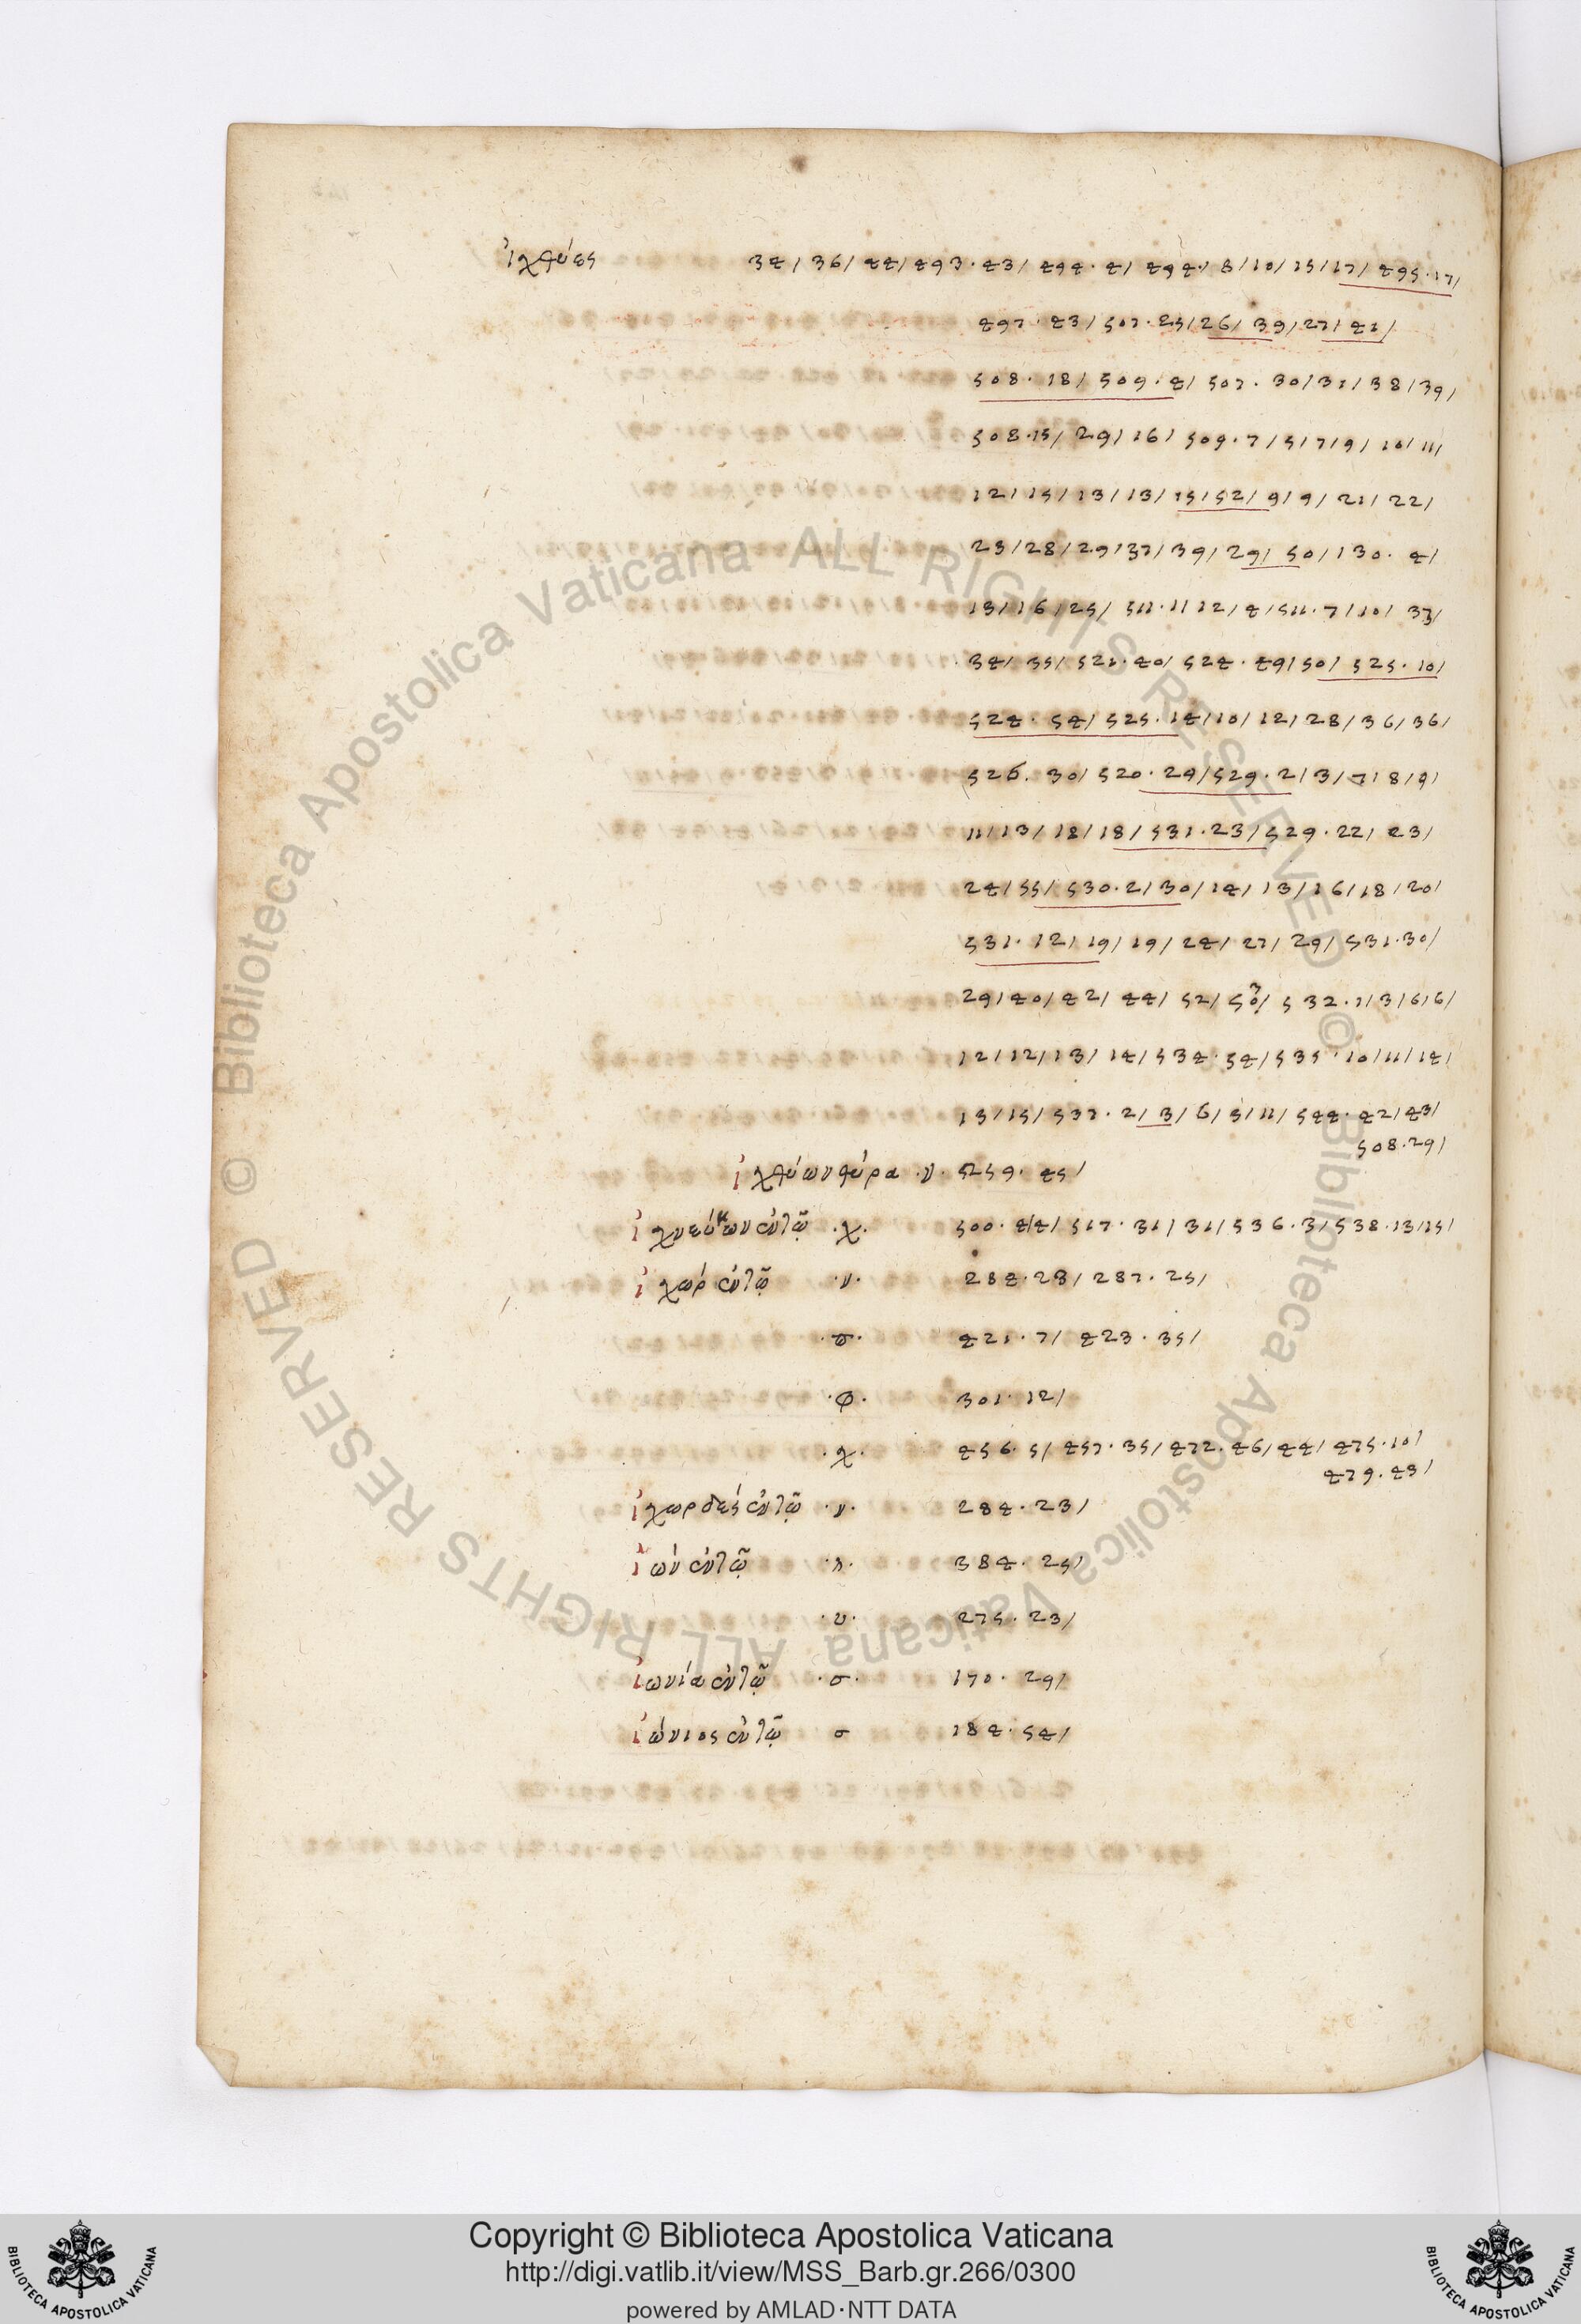 ἰχθύες 34/36/44/493·43/494·4/494·/8/10/15/17/495·17/
497·43/507·25/26/39/27/41/
508·18/509·4/507·30/31/38/39/
508·15/29/16/509·7/5/7/9/10/11/
12/15/13/13/15/52/9/9/21/22/
23/28/29/37/39/29/50/130·4/
13/16/25/511·1/12/4/511·7/10/33/
34/35/521·40/524·49/50/525·10/
524·54/525·14/10/12/28/36/36/
526·30/520·29/529·2/3/7/8/9/
11/13/18/18/531·23/529·22/23/
24/55/530·2/30/14/13/16/18/20/
531·12/19/19/24/27/29/531·30/
29/40/42/44/52/50/532·1/3/6/6/
12/12/13/14/534·54/535·10/11/14/
13/15/537·2/3/6/5/11/544·42/43/
508·29/
ἰχθύων θύρα ·ν· 5259·45/
·χ· 500·4/4/517·31/31/536·3/538·13/15/
ἰχώρ ἐν τῷ ·ν· 284·28/287·25/
·σ· 421·7/423·35/
·φ· 301·12/
·χ· 456·5/457·35/472·46/44/475·10/
479·43/
ἐν τῷ ·ν· 284·23/
ἰών ἐν τῷ 384·25/
·υ· 275·23/
ἰωνία ἐν τῷ ·σ· 170·29/
ἰώνιος ἐν τῷ σ 184·54/
Copyright © Biblioteca Apostolica Vaticana
http://digi.vatlib.it/view/MSS_Barb.gr.266/0300
powered by AMLAD·NTT DATA